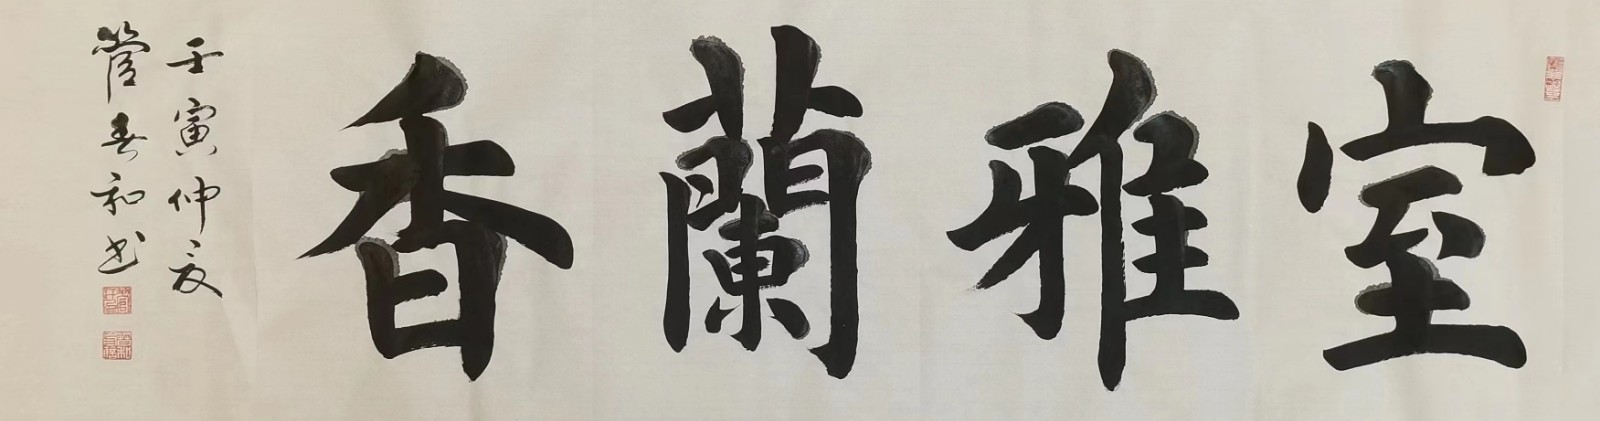 室雅蘭香
壬寅仲夏
管春和书